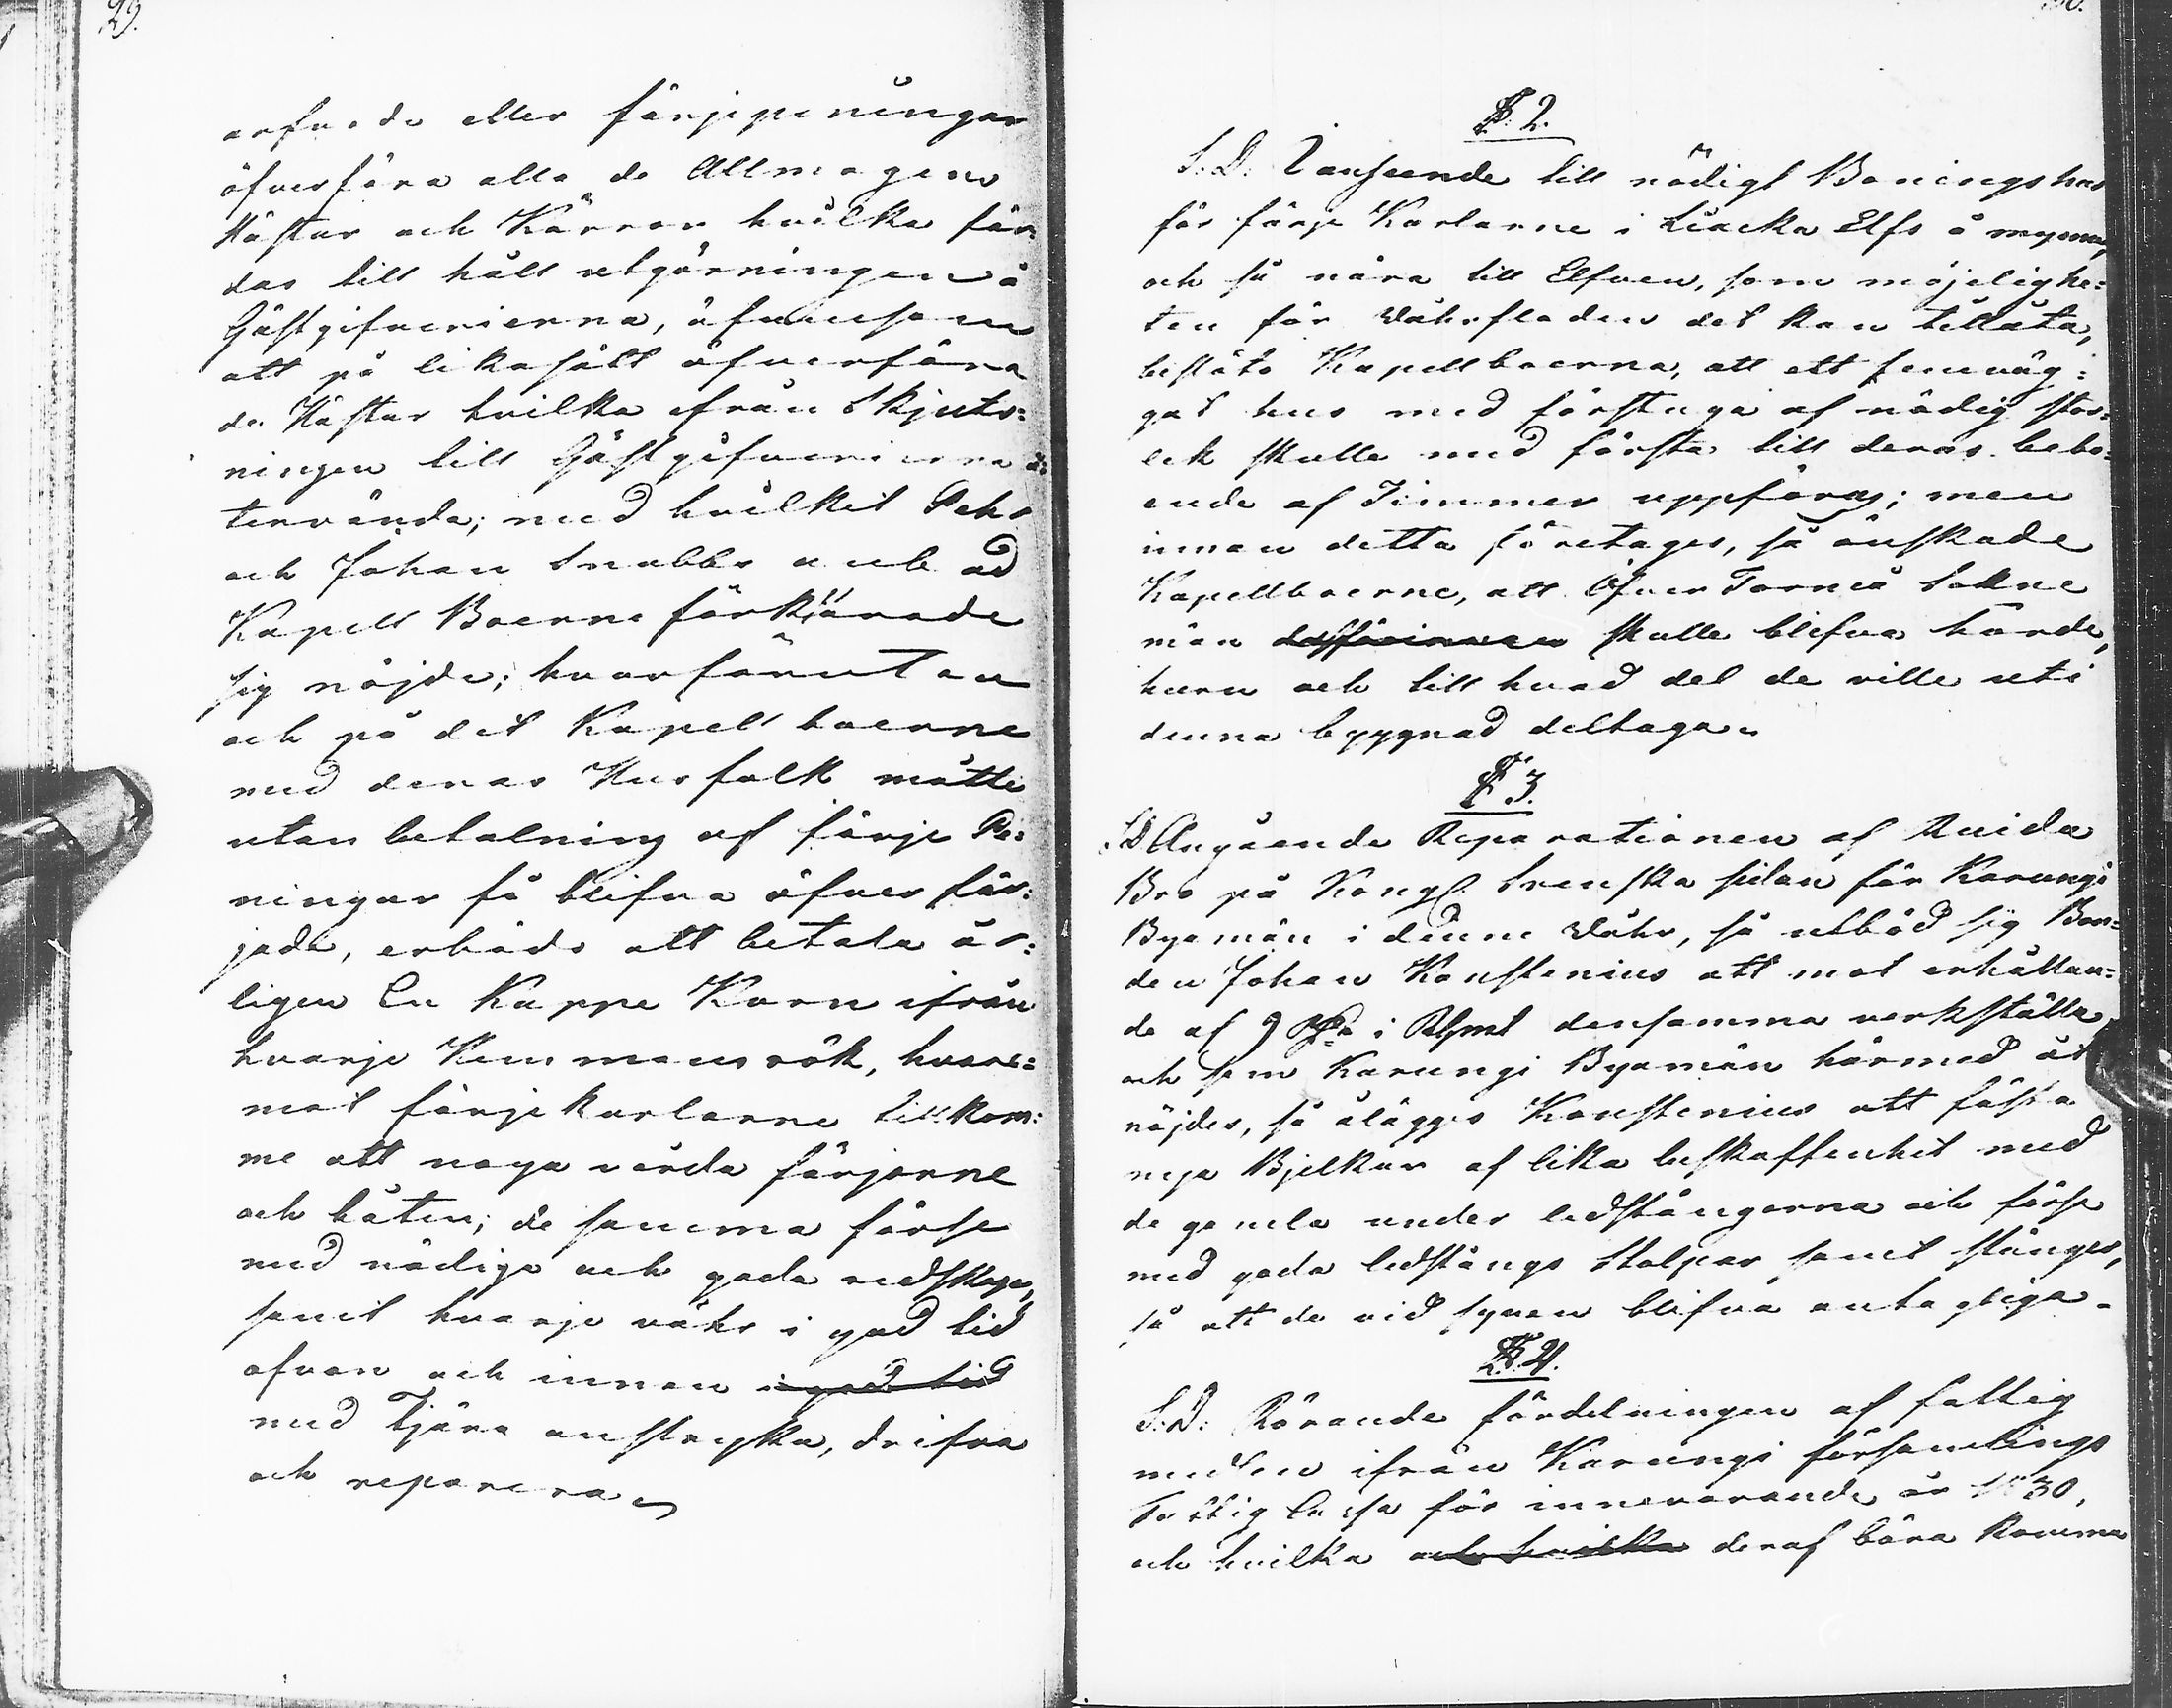 29.
arfvode eller färjepeningar
öfverföra alla de Allmogens
Hästar och Kärror hvilka för=
das till håll utgörningen å
Gästgifverierna, äfvensom
att på lika sätt öfverföra
de Hästar hvilka ifrån Skjuts=
ningen till Gästgifverierna å=
tervända; med hvilket Pehr
och Johan Snabbs anbud
Kapell Boerne förklarade
sig nöjde; hvarförutan
och på det Kapellboerne
med deras Husfolk måtte
utan betalning af färje Pe=
ningar få blifva öfver fär=
jade, erböds att betala år=
ligen En Kappe Korn ifrån
hvarje Hemmans rök, hvare=
mot färjekarlarne tillkom=
me att noga vårda färjorne
och båten; de samma förse
med nödige och goda redskap,
samt hvarje våhr i god tid
ofvan och innan i god tid
med Tjära anstryka, drifva
och reparera
30.
§ 2.
S. D. I anseende till nödigt Boningshus
för färje Karlarne i Liacka Elfs å mynne,
och så nära till Elfven, som möjelighe=
ten för Wåhrfloden det kan tillåta,
beslöto Kapellboerna, att ett femväg=
gat hus med förstuga af nödig stor=
lek skulle med första till deras bebo=
ende af Timmer uppföras; men
innan detta företages, så önskade
Kapellboerne, att Öfver Torneå Sokne
män skulle blifva hörde,
huru och till hvad del de ville uti
denna byggnad deltaga.
§ 3.
S. D. Angående Reparationen af Kuida
Bro på Kongl Svenska sidan för Karungi
Byamän i denne Wåhr, så utböd sig Bon=
den Johan Konstenius att mot erhållan=
de af 9 i densamma verkställa,
och som Karungi Byamän härmed åt
nöjdes, så ålägges Konstenius att fästa
nya Bjelkar af lika beskaffenhet med
de gamla under ledstängerna och förse
med goda ledstångs Stolpar samt stänger,
så att de vid synen blifva antagliga.
§ 4.
S. D. Rörande fördelningen af fattig
medlen ifrån Karungi församlings
Fattig Cassa för innevarande år 1830,
och hvilka och hvilka deraf böra komma